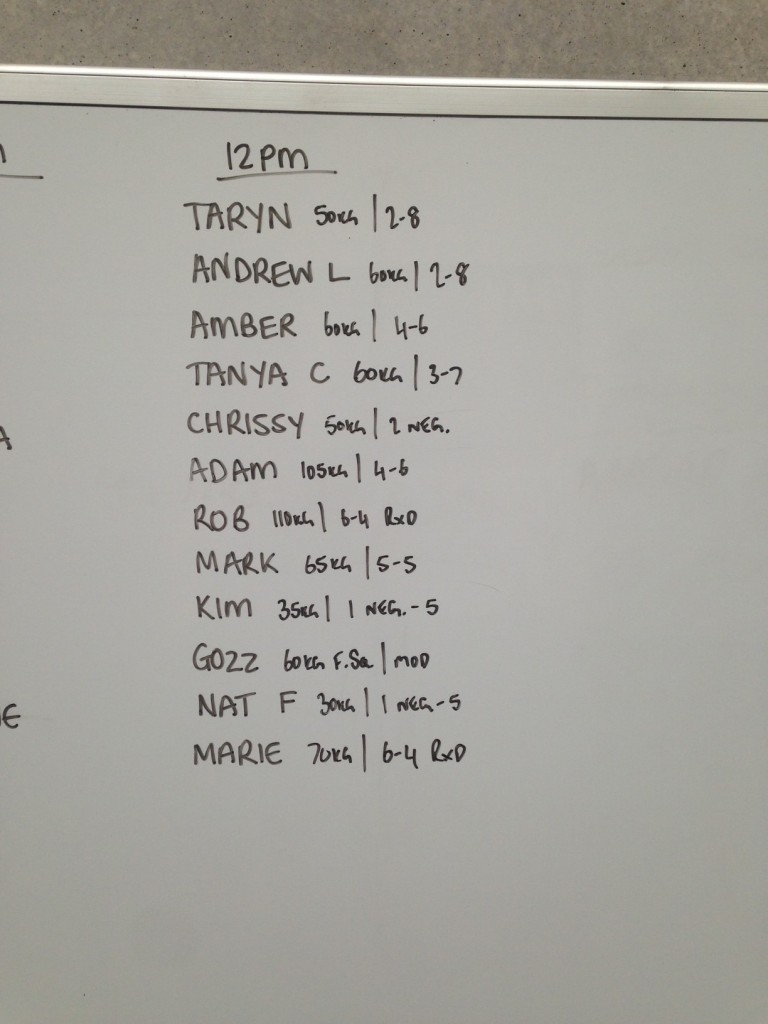 12PM
TARYN 50KG | 2-8
ANDREW L 60KG | 2-8
AMBER 60KG | 4-6
TANYA C 60KG | 3-7
CHRISSY 50KG | 2 NEG.
ADAM 105KG | 4-6
ROB 110KG | 6-4 RXD
MARK 65KG | 5-5
KIM 35KG | 1 NEG.-5
GOZZ 60KG F.SQ | MOD
NAT F 30KG | 1 NEG-5
MARIE 70KG | 6-4 RXD